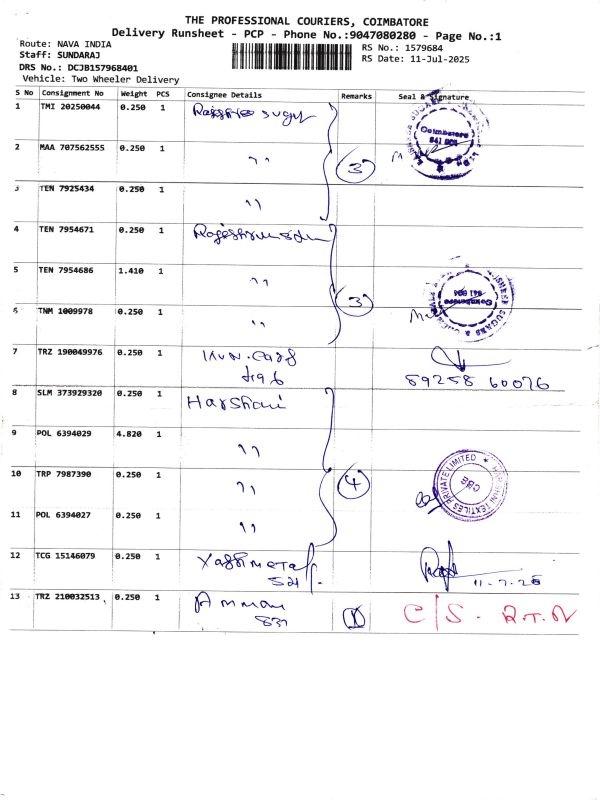 THE PROFESSIONAL COURIERS, COIMBATORE
Delivery Runsheet - PCP - Phone No.:9047080280 - Page No.:1
Route: NAVA INDIA
Staff: SUNDARAJ
DRS No.: DCJB157968401
Vehicle: Two Wheeler Delivery
RS No.: 1579684
RS Date: 11-Jul-2025
S No Consignment No Weight PCS Consignee Details Remarks Seal & Signature
1 TMI 20250044 0.250 1
2 MAA 707562555 0.250 1 " 3
3 TEN 7925434 0.250 1 "
4 TEN 7954671 0.250 1
5 TEN 7954686 1.410 1 " 3
6 TNM 1009978 0.250 1 "
7 TRZ 190049976 0.250 1
89258 60076
8 SLM 373929320 0.250 1 Harshani
9 POL 6394029 4.820 1 "
10 TRP 7987390 0.250 1 " 4
11 POL 6394027 0.250 1 "
12 TCG 15146079 0.250 1
521 11-7-25
13 TRZ 210032513 0.250 1 Amman C/S. R.T.N
831 1
Coimbatore
641 604
TEXTILES PRIVATE LIMITED
CBE